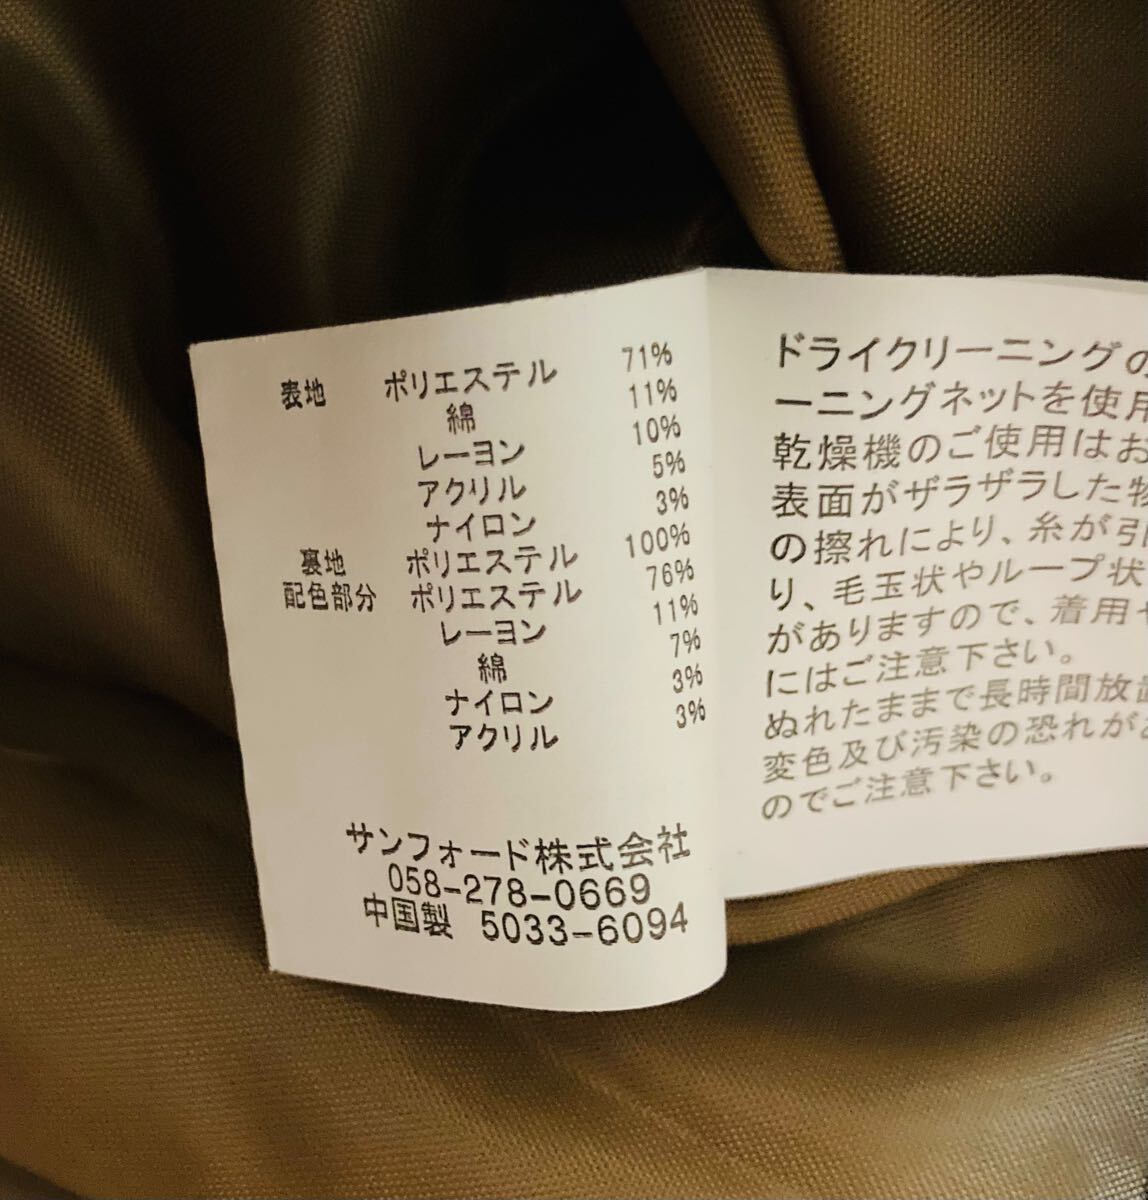 表地 ポリエステル 71%
綿 11%
レーヨン 10%
アクリル 5%
ナイロン 3%
裏地 ポリエステル 100%
配色部分 ポリエステル 76%
レーヨン 11%
綿 7%
ナイロン 3%
アクリル 3%
サンフォード株式会社
058-278-0669
中国製 5033-6094
ドライクリーニングの
ーニングネットを使用
乾燥機のご使用はお
表面がザラザラした物
の擦れにより、糸が引
り、毛玉状やループ状
がありますので、着用や
にはご注意下さい。
ぬれたままで長時間放置
変色及び汚染の恐れがあ
のでご注意下さい。